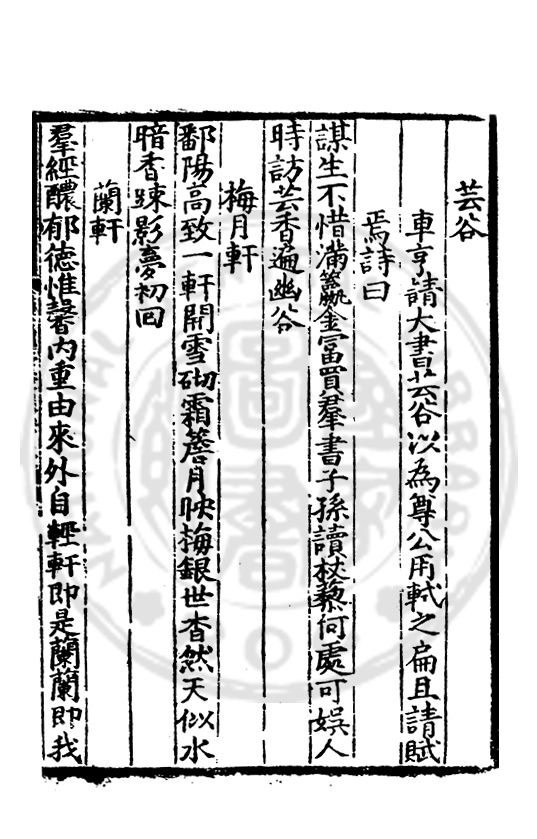 芸谷
車亨請大書芸谷以為尊公用軾之扁且請賦
焉詩曰
謀生不惜滿籯金富買羣書子孫讀杖藜何處可娛人
時訪芸香遍幽谷
梅月軒
鄱陽高致一軒開雪砌霜簷月映梅銀世杳然天似水
暗香踈影夢初回
蘭軒
羣經醲郁德惟馨內重由來外自輕軒即是蘭蘭即我